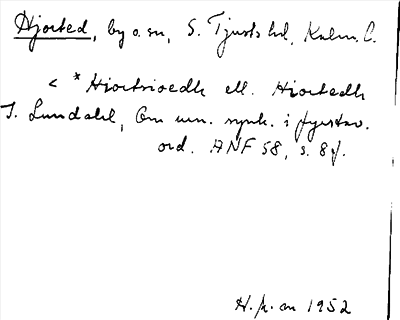 Hjorted, by o. sn, S. Tjusts hd, Kalm. l.
< *Hiortrioedh ell. Hiortedh
I. Lundahl, Om un. synk. i fyrstav.
ord. ANF 58, s. 8 f.
H. p. an 1952